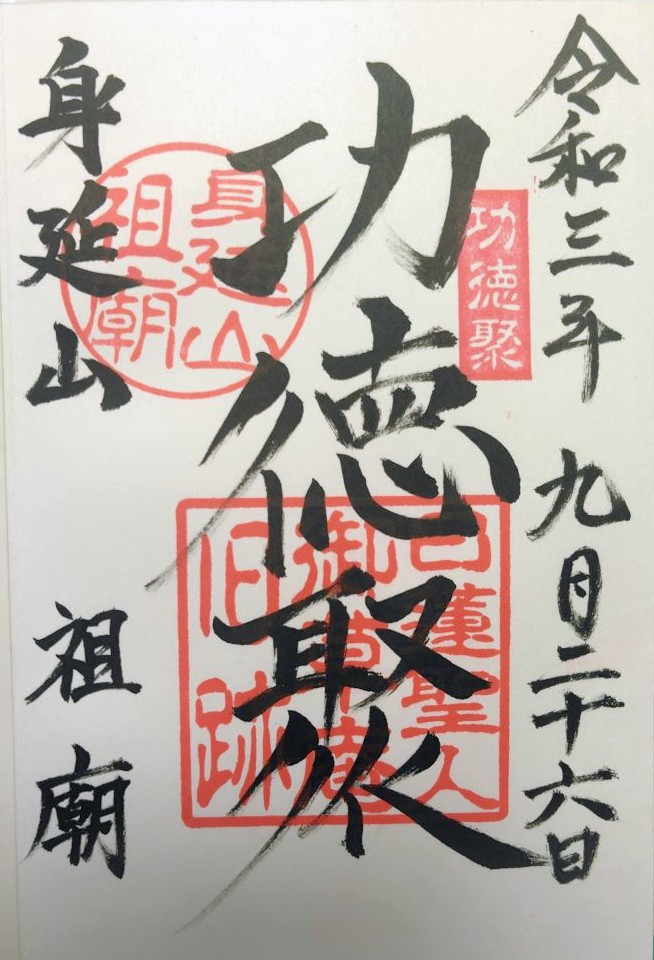 令和三年 九月二十六日
功徳聚
功徳聚
身延山
祖廟
日蓮聖人
御草庵
旧跡
身延山 祖廟